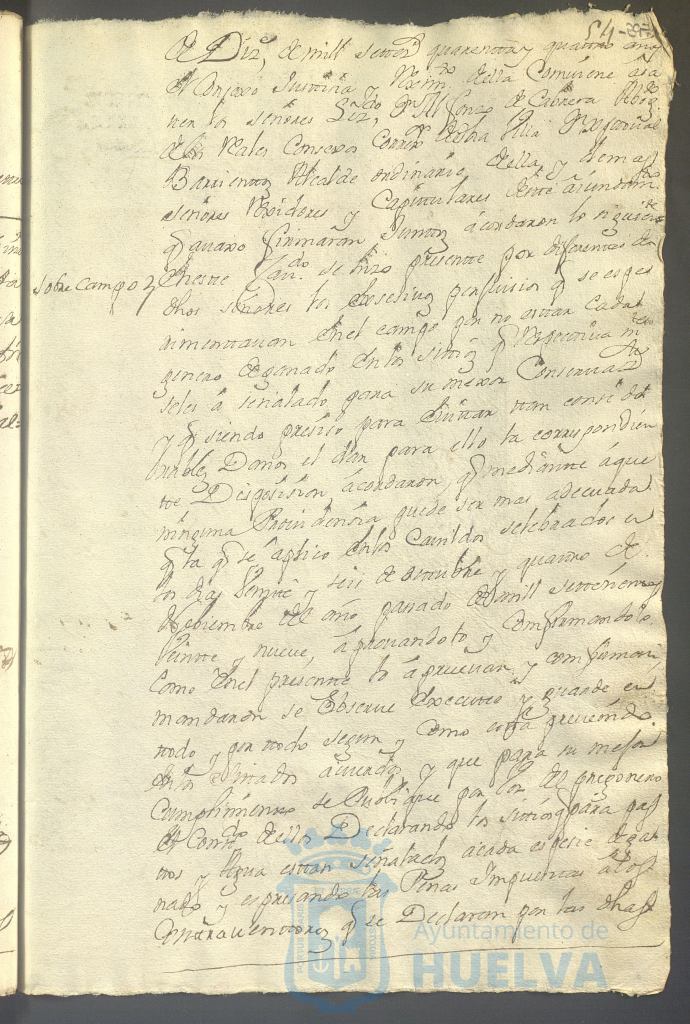 54
de Diz.e, de mill settez.s quarenta y quattro años
el Conzexo Justicia y Reximto della Comviene a sa
ver los señores Liz.do Dn
de Cabrera Abog.do
de los Reales Consexos Correx.or desta Villa
Barrientos Alcalde ordinario della, y demas
señores Rexidores y Capitulares deste aiuntam.to
q avaxo firmaran Juntos acordaron lo siguiente
Sobre campo
En este Cav.do se hizo presente por diferentes de
dhos señores los excesivos perjuisios q se espe
rimentavan en el campo por no estar cada
genero de ganado en los sittios q respectivam.te
se les a señalado para su mexor Conserva.on
y q siendo presiso para evittar ttan conside
rables Daños el dar para ello la correspondien
te Disposision, acordaron q mediante a que
ninguna Providensia puede ser mas adecuada
q la q se aplico en los Cavildos selebrados en
los dias beinte y seis de octtubre y quattro de
Nobiembre del año pasado de mill settecientos
Veinte y nueve, aprovandolo y Comfirmandolo
como en el presente lo aprueban, y comfirman
mandaron se Observe Execute y guarde en
ttodo y por ttodo segun y como esta prevenido
en los Zitados acuerdos y que para su mejor
Cumplimiento se Publique por voz de pregonero
el Conth.do dellos Declarando los sittios q para pas
tos y Agua esttan señalados a cada espesie de ga
nado y espresando las Penas Impuestas a los
Contraventtores q se Declaran por las dhas
Ayuntamiento de
HUELVA